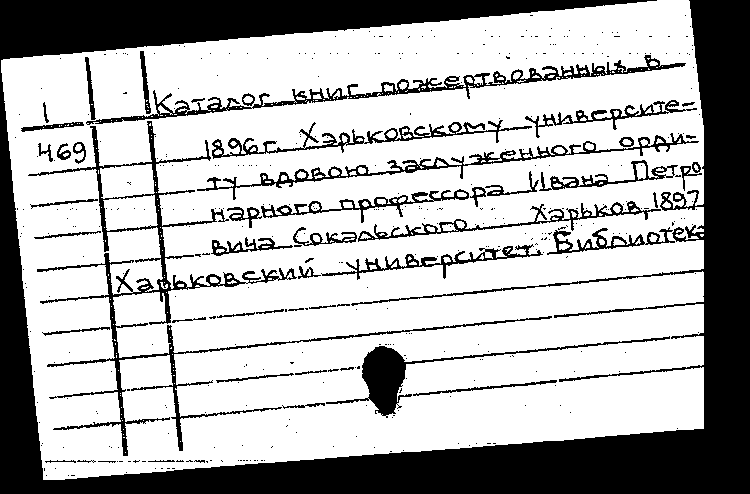 1 Каталог книг пожертвованных в
469 1896 г. Харьковскому университе-
ту вдовою заслуженного орди-
нарного профессора Ивана Петро-
вича Сокальского. Харьков, 1897
Харьковский университет. Библиотека